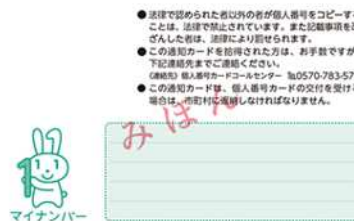 ●法律で認められた者以外の者が個人番号をコピーす
ことは、法律で禁止されています。また記載事項を
ざんした者は、法律により罰せられます。
●この通知カードを拾得された方は、お手数ですが
下記連絡先までご連絡ください。
《連絡先》個人番号カードコールセンター ℡0570-783-57
●この通知カードは、個人番号カードの交付を受ける
場合は、市町村に返納しなければなりません。
みほん
1
マイナンバー